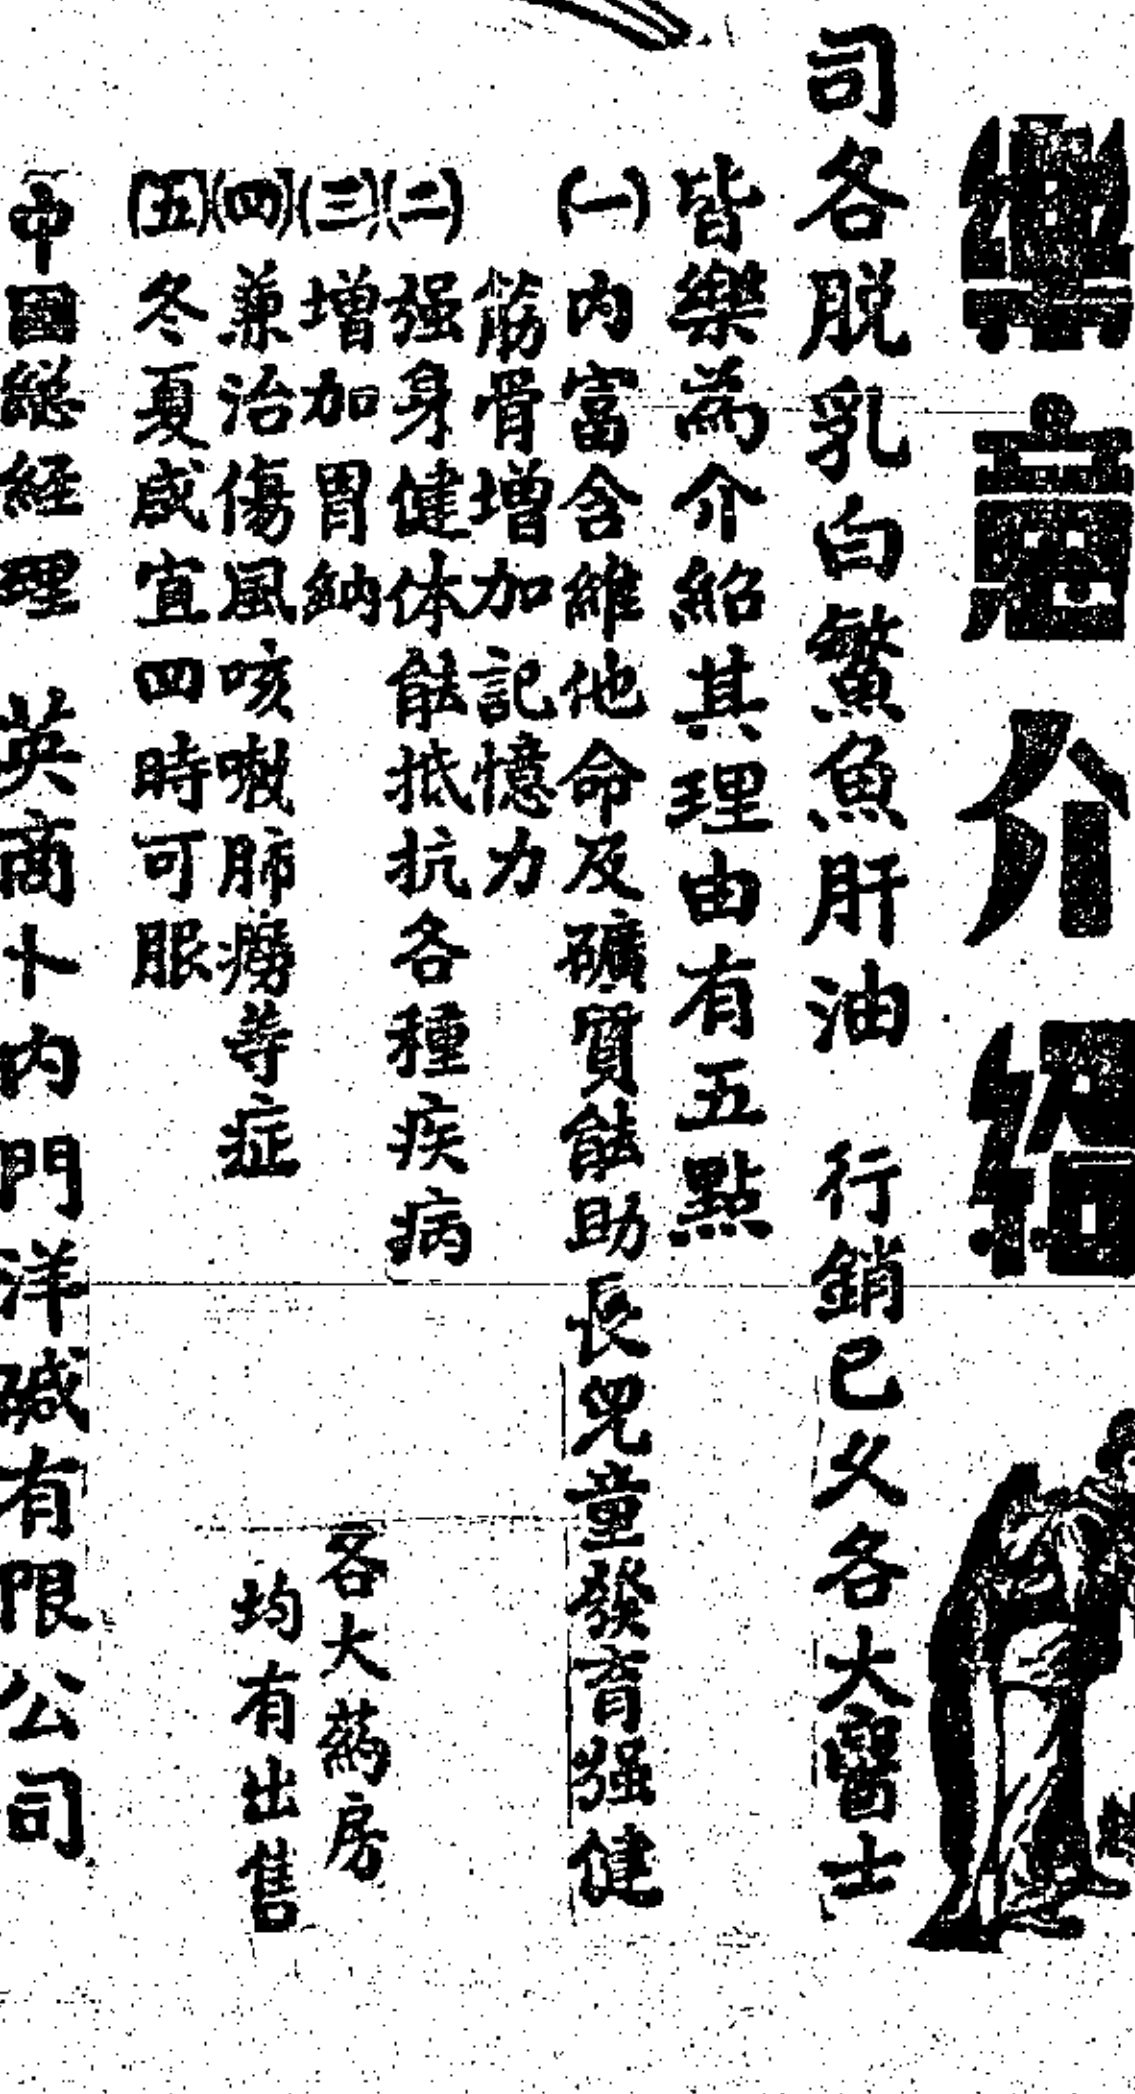 樂意介紹
司各脱乳白鰵魚肝油 行銷已久各大醫士
皆樂為介紹其理由有五點
(一)內富含維他命及礦質能助長兒童發育强健
筋骨增加記憶力
(二)强身健体能抵抗各種疾病
(三)增加胃納
(四)兼治傷風咳嗽肺癆等症
(五)冬夏咸宜四時可服
各大葯房
均有出售
中國總经理 英商卜內門洋碱有限公司